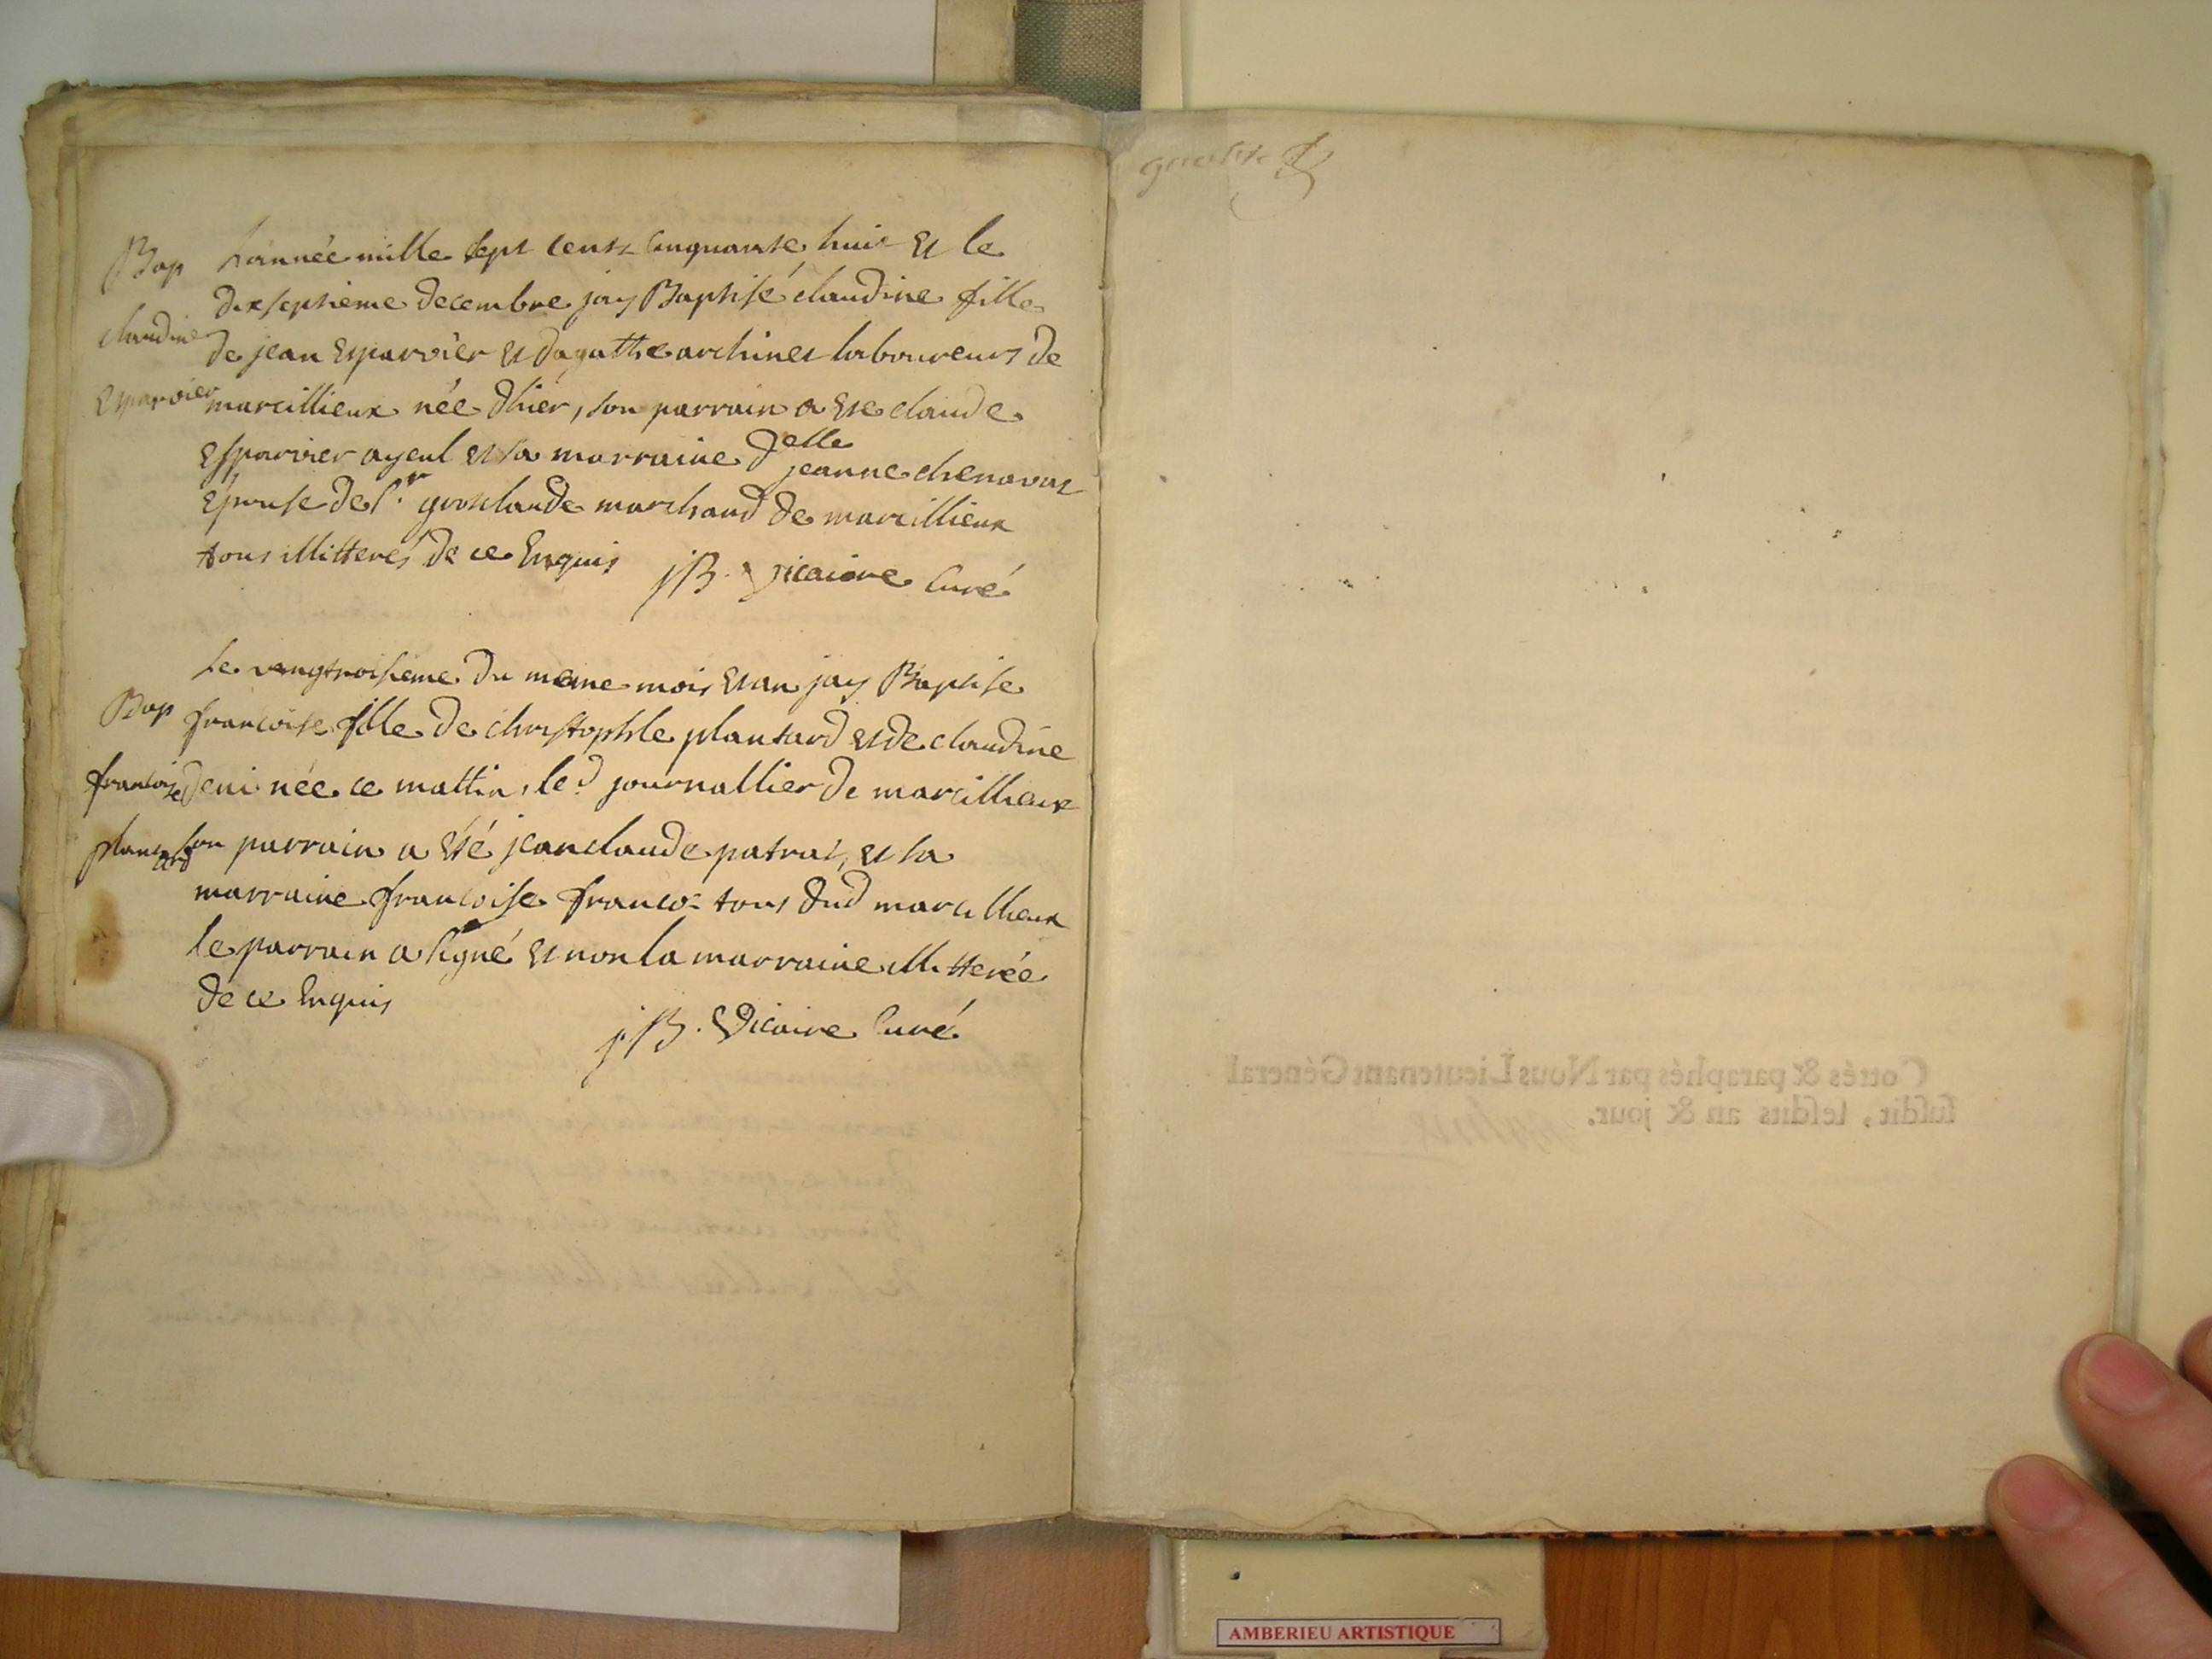 Bap
L'année mille sept cents cinquante huit et le
dixseptieme decembre jay Baptisé claudine fille
claudine
de jean Esparvier et dagatthe archinet laboureurs de
Esparvier
marcillieux née d'hier, son parrain a ete claude
Esparvier ayeul et sa marraine delle jeanne chenavas
Epouse de sr groslaude marchand de marcillieux
tous illitterés de ce Enquis
jB. Vicaire Curé
Le vengtroisieme du meme mois et an jay Baptise
Bap
francoise fille de christophle plantard et de claudine
francoise
deni née ce mattin, led journallier de marcillieux
plantard
son parrain a été jeanclaude patrat, et sa
marraine francoise franco tous dud marcillieux
le parrain a signé et non la marraine illitterée
de ce Enquis
jB. Vicaire Curé
Cottés & paraphés par Nous Lieutenant Général
susdit, lesdits an & jour.
AMBERIEU ARTISTIQUE